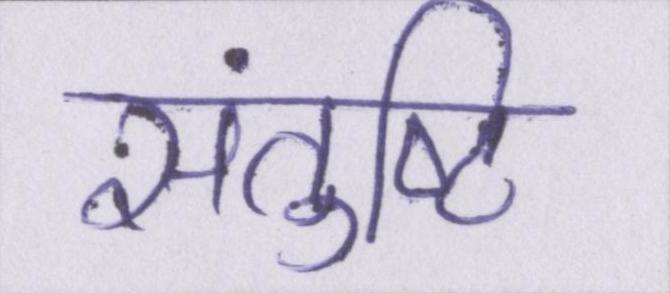 संतुष्टि